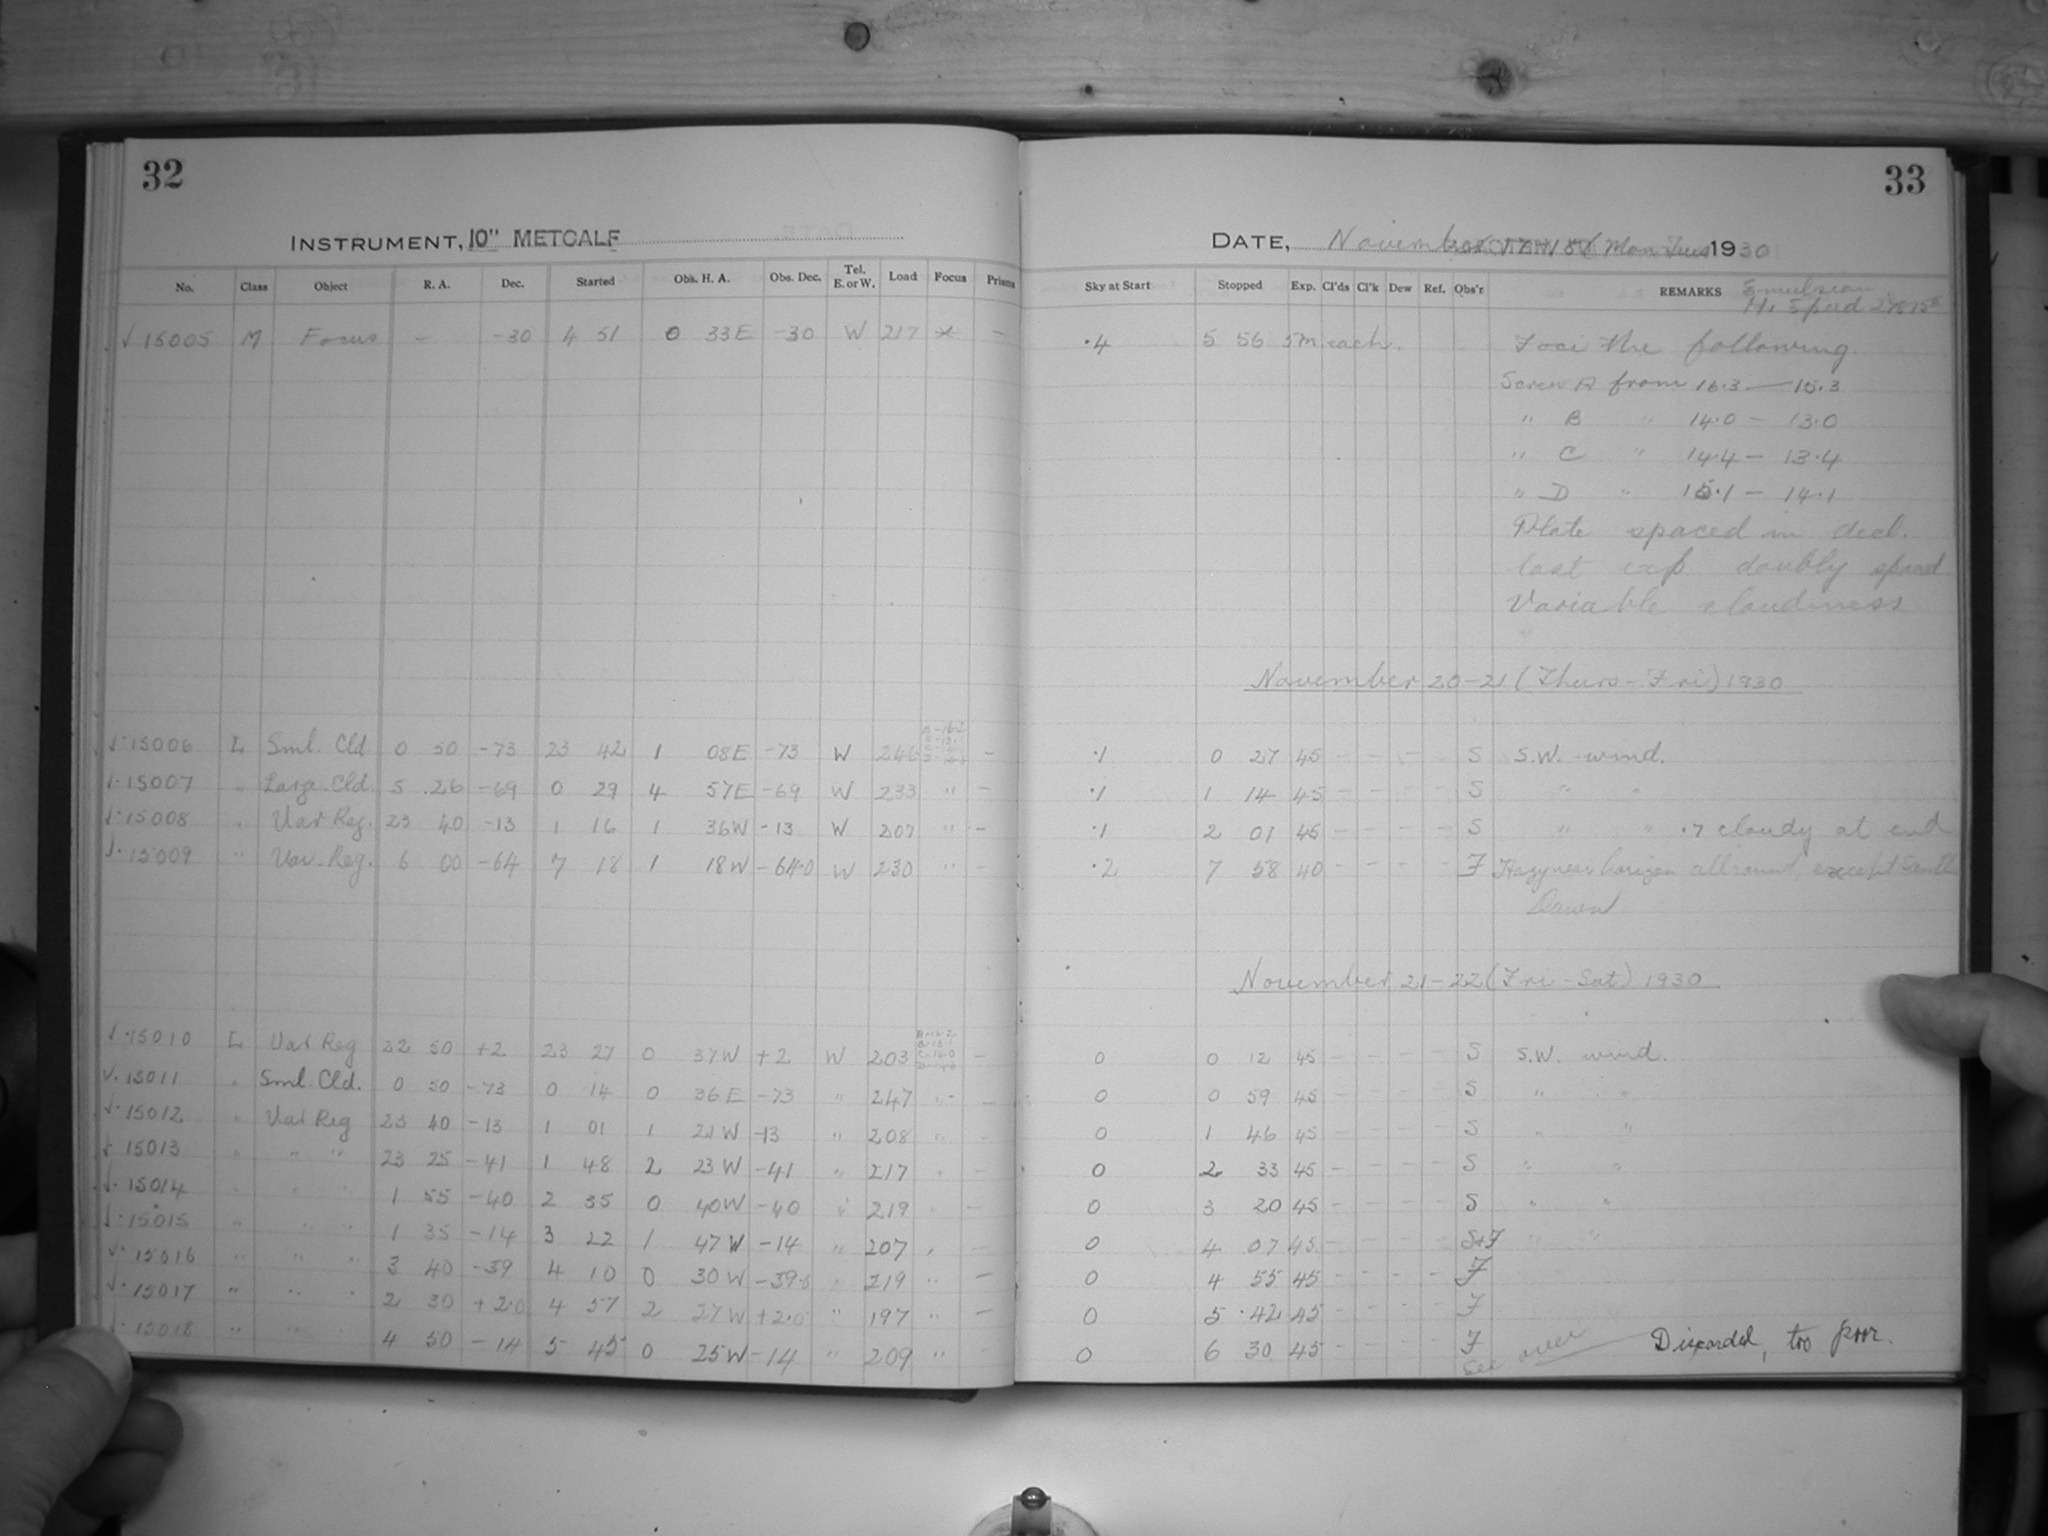 32
33
INSTRUMENT, 10" METCALF
DATE, November 17-18 Mon Tues 1930
No. Class Object R. A. Dec. Started Obs. H. A. Obs. Dec. Tel. E. or W. Load Focus Prisms Sky at Start Stopped Exp. Cl'ds Cl'k Dew Ref. Obs'r REMARKS Emulsion
Hi Speed
√ 15005 M Focus - -30 4 51 0 33E -30 W 217 - .4 5 56 5M each. Foci the following
Screw A from 16.3 — 15.3
" B " 14.0 — 13.0
" C " 14.4 — 13.4
" D " 15.1 — 14.1
Plate spaced in decl.
last exp doubly spaced
Variable cloudiness
November 20-21 (Thurs - Fri) 1930
√ 15006 L Sml. Cld 0 50 -73 23 42 1 08E -73 W 246 - .1 0 27 45 - - - - S S.W. wind.
√ 15007 " Large Cld. 5 26 -69 0 29 4 57E -69 W 233 " - .1 1 14 45 - - - - S " "
√ 15008 " Var Reg. 23 40 -13 1 16 1 36W -13 W 207 " - .1 2 01 45 - - - - S " " .7 cloudy at end
√ 15009 " Var. Reg. 6 00 -64 7 18 1 18W -64.0 W 230 " - .2 7 58 40 - - - - F Hazy near horizon all round, except South
Dawn
November 21-22 (Fri - Sat) 1930
√ 15010 L Var Reg 22 50 +2 23 27 0 37W +2 W 203 - 0 0 12 45 - - - - S S.W. wind.
√ 15011 " Sml. Cld. 0 50 -73 0 14 0 36E -73 " 247 " - 0 0 59 45 - - - - S " "
√ 15012 " Var Reg 23 40 -13 1 01 1 21W -13 " 208 " - 0 1 46 45 - - - - S " "
√ 15013 " " " 23 25 -41 1 48 2 23W -41 " 217 " - 0 2 33 45 - - - - S " "
√ 15014 " " " 1 55 -40 2 35 0 40W -40 " 219 " - 0 3 20 45 - - - - S " "
√ 15015 " " " 1 35 -14 3 22 1 47W -14 " 207 " - 0 4 07 45 - - - - S+F " "
√ 15016 " " " 3 40 -39 4 10 0 30W -39.5 " 219 " - 0 4 55 45 - - - - F
√ 15017 " " " 2 30 +2.0 4 57 2 27W +2.0 " 197 " - 0 5 42 45 - - - - F
√ 15018 " " " 4 50 -14 5 45 0 25W -14 " 209 " - 0 6 30 45 - - - F Discarded, too poor.
See over